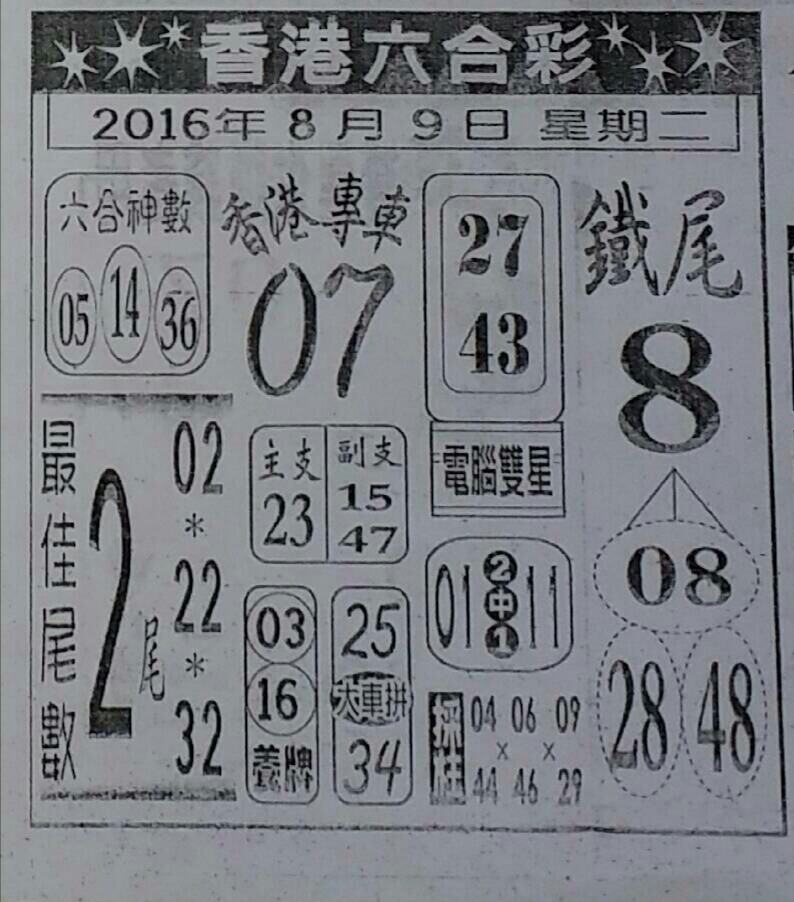 香港六合彩
2016年8月9日 星期二
六合神數
05 14 36
香港專車
07
27
43
電腦雙星
鐵尾
8
08
28 48
最佳尾數
2尾
02
*
22
*
32
主支
23
副支
15
47
03
16
養牌
25
大車拼
34
01 2中1 11
採碰
04 06 09
x x
44 46 29